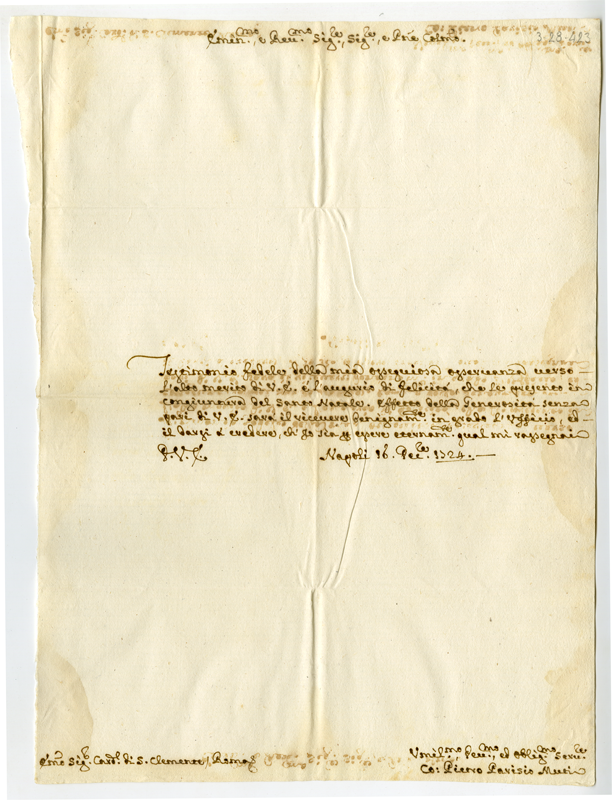 3.28.423
Emin.mo, e Rev.mo Sig.re, Sig.re, e Prñe Colmo.
Testimonio fedele della mia ossequiosa osservanza verso
l'alto merito di V.E. è l'augurio di felicità, che le presento in
congiuntura del Santo Natale. Effetto della Generosità senza
pari di V.E. sarà il ricevere benignam.te in grado l'Ufficio, ed
il darsi a credere, ch'Io sia p essere eternam.te qual mi rassegnai
D.V.E. Napoli 16. Dec.re 1724.
Emo Sig.r Card.l di S. Clemente / Roma
Vmil.mo, Dev.mo, ed Oblig.mo Serv.re
Co: Pietro Parisio